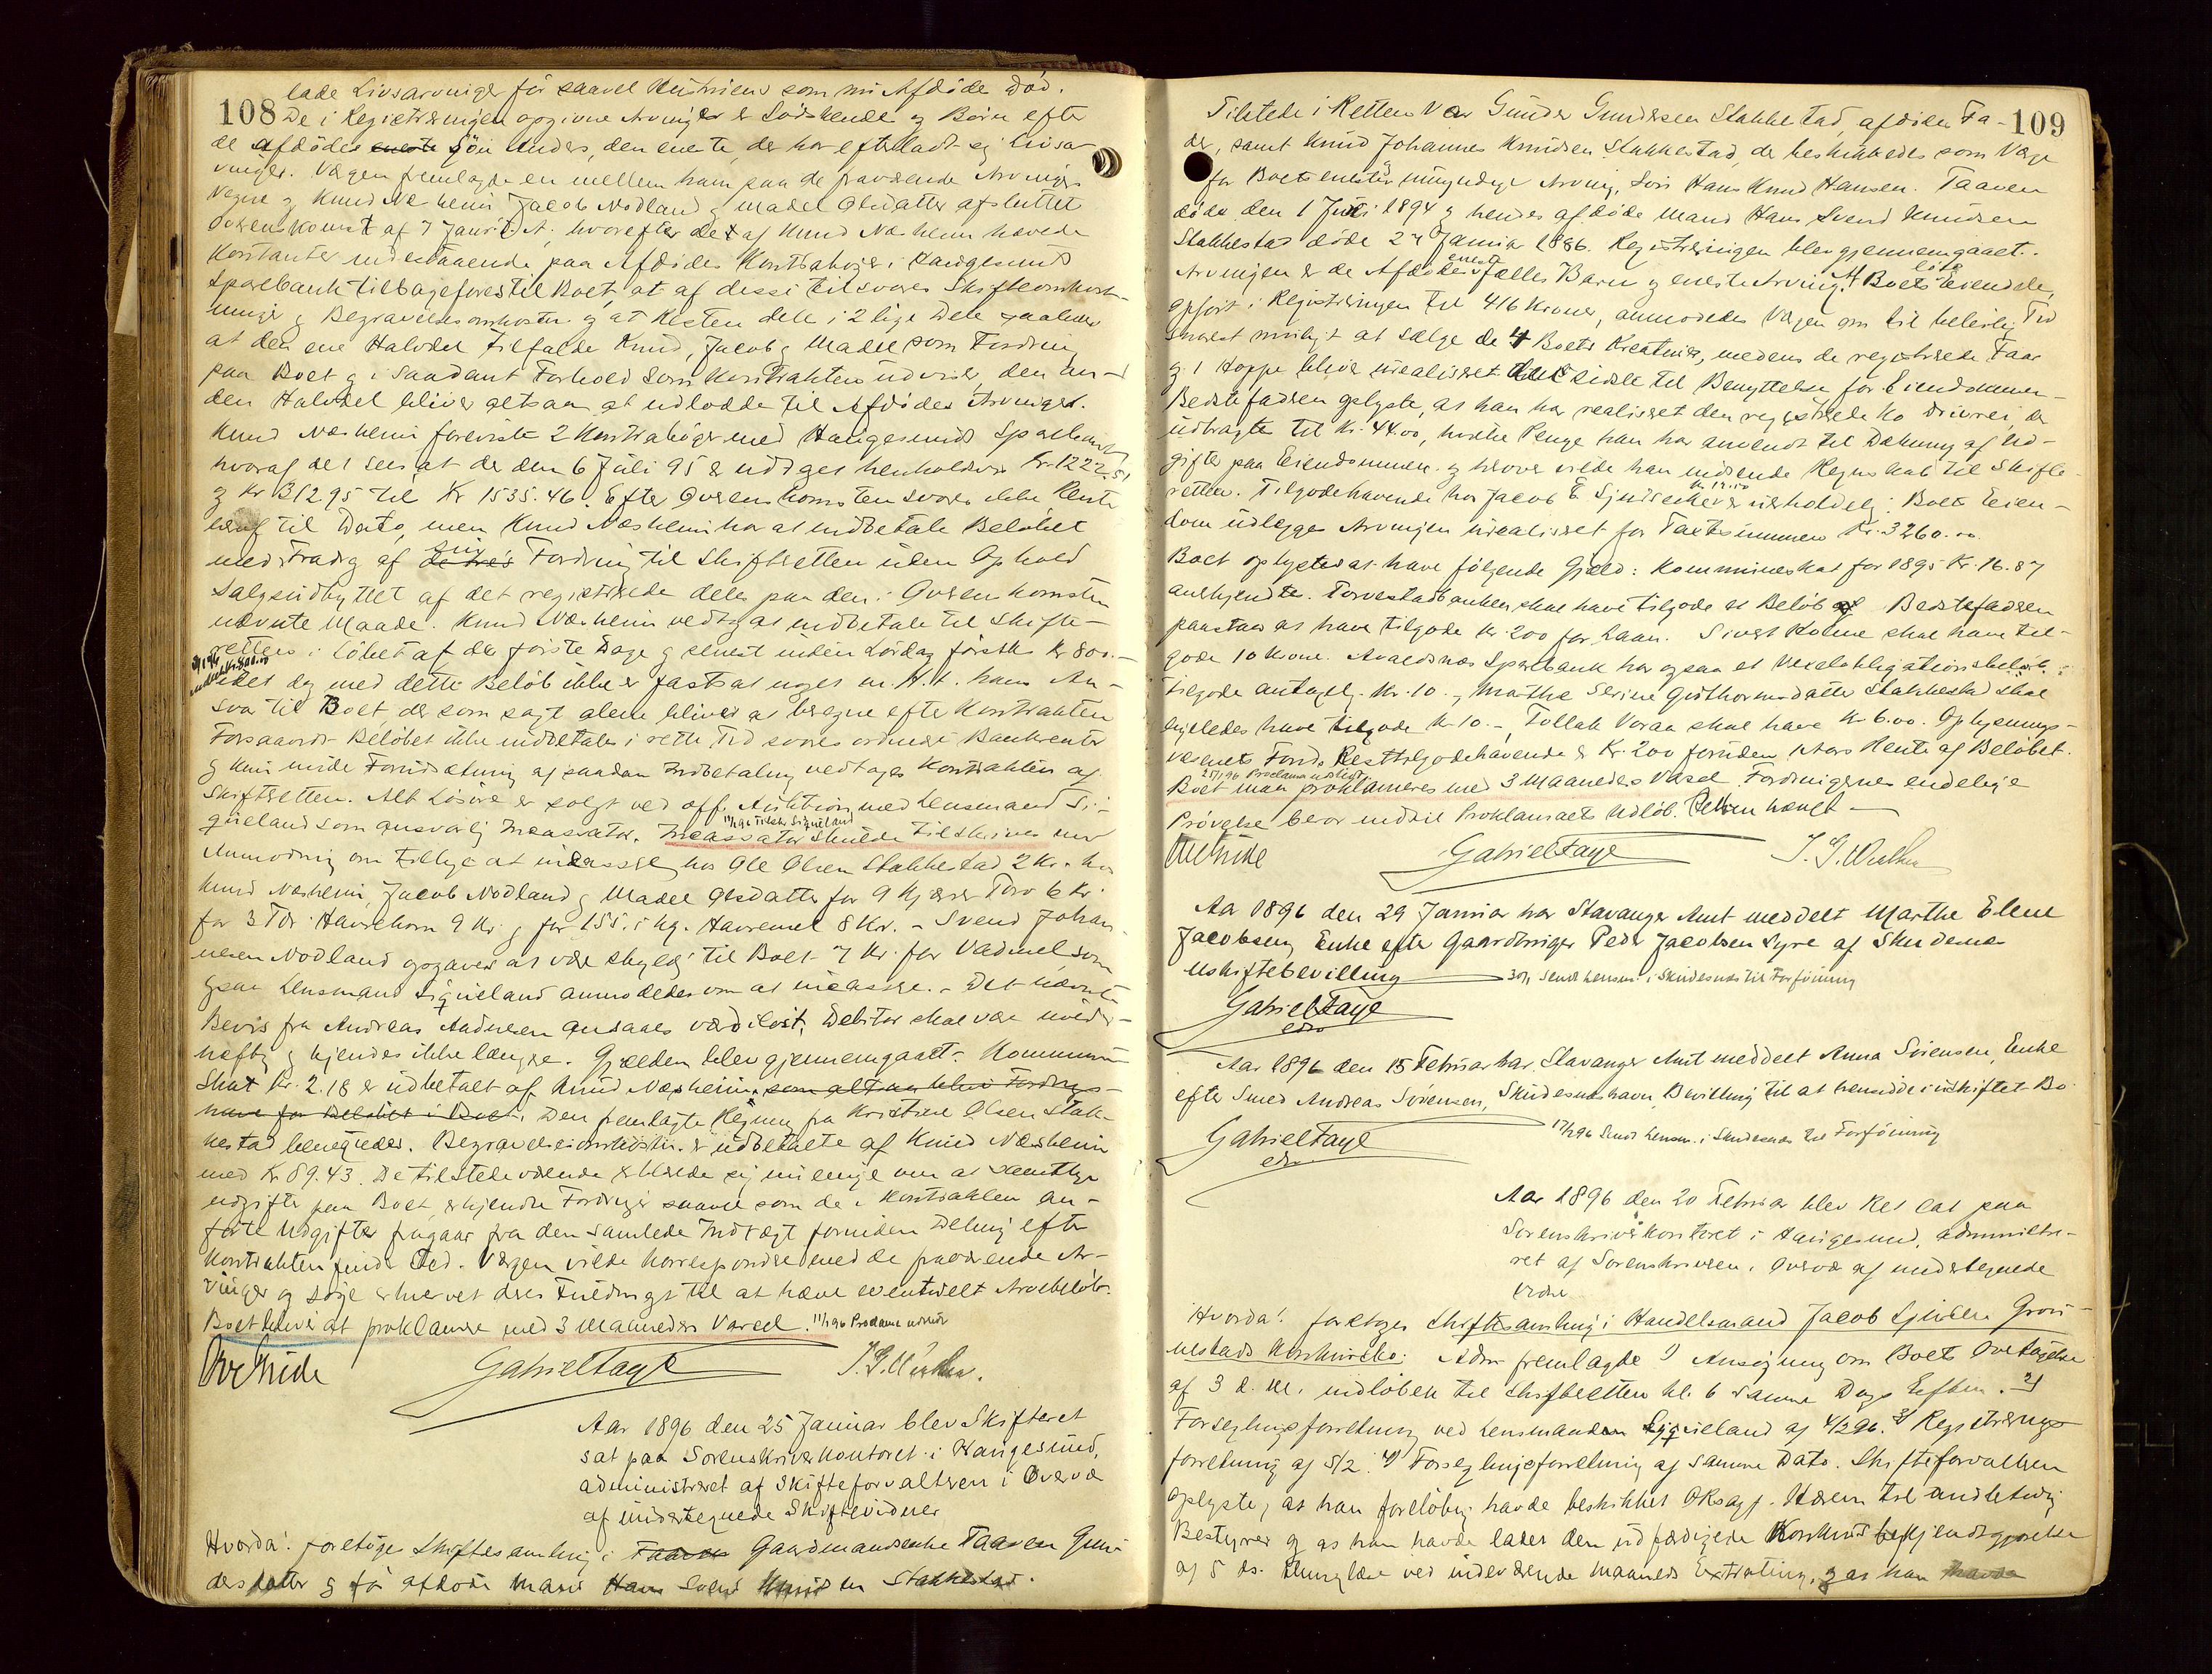 108
lade Livsarvinger før saavel Hustruens som nu Afdøde død.
De i Registreringen opgivne Arvinger er Sødskende og Børn efter
de afdødes eneste Søn Anders, den eneste, der har efterladt sig Livsar-
vinger. Værgen fremlagde en mellem ham paa de fraværende Arvingers
Vegne og Knud Næsheim Jacob Nodland og Madel Olsdatter afsluttet
Overenskomst af 7 Januar d. A. hvorefter det af Knud Næsheim hævede
Kontanter indestaaende paa Afdødes Kontrabøger i Haugesunds
Sparebank tilbageføres til Boet, at af disse tilsvares Skifteomkost-
ninger og Begravelsesomkostn. og at Resten dele i 2 lige Dele saaledes
at den ene Halvdel tilfalder Knud, Jacob og Madel som Fordring
paa Boet og i saadant Forhold som Kontrakten udviser, den an-
den Halvdel bliver altsaa at udlodde til Afdødes Arvinger.
Knud Næsheim foreviste 2 Kontrabøger med Haugesunds Sparebank
hvoraf det sees at der den 6 Juli 95 er udtaget henholdsvis Kr. 1222.51
og Kr 312 95 til Kr 1535.46. Efter Overenskomsten svares ikke Rente
heraf til Dato, men Knud Næsheim har at indbetale Beløbet
med Fradrag af deres sin Fordring til Skifteretten uden Ophold
Salgsudbyttet af det registrerede deles paa den i Overenskomsten
nævnte Maade. Knud Næsheim vedtog at indbetale til Skifte-
retten i Løbet af de første Dage og senest inden Lørdag førstk. Kr 800.-
idet dog med dette Beløb ikke er fastsat noget m. H. t. hans An-
svar til Boet, der som sagt alene bliver at beregne efter Kontrakten
Forsaavidt Beløbet ikke indbetales i rette Tid svares ordinær Bankrenter
og kun under Forudsætning af saadan Indbetaling vedtages Kontrakten af
Skifteretten. Alt Løsøre er solgt ved off. Auktion med Lensmand Si-
queland som ansvarlig Incassator. Incassator Skulde tilskrives med
11/1 96 tilskr Siqueland
Anmodning om tillige at incassere hos Ole Olsen Stakkestad 2 Kr. hos
Knud Næsheim, Jacob Nodland og Madel Olsdatter for 9 Kjærrer Torv 6 Kr.
for 3 Tdr. Havrekorn 9 Kr. og for 155.5 kg. Havremel 8 Kr. - Svend Johan-
nesen Nodland opgaves at være skyldig til Boet 7 Kr. for Vadmel som
ogsaa Lensmand Siqueland anmodedes om at incassere. - Det nævnte
Bevis fra Andreas Andresen ansaaes værdiløst, Debitor skal være uveder-
heftig og kjendes ikke længere. Gjælden blev gjennemgaaet. Kommune-
Skat Kr. 2.18 er udbetalt af Knud Næsheim som altsaa bliver Fordrings-
haver for Beløbet i Boet. Den fremlagte Regning fra Kristine Olsen Stak-
kestad benegtedes. Begravelsesomkostn. er udbetalte af Knud Næsheim
med Kr 89.43. De tilstedeværende erklærede sig enige om at samtlige
udgifter paa Boet, erkjendte Fordringer saavel som de i Kontrakten an-
førte Udgifter fragaar fra den samlede Indtægt forinden Deling efter
Kontrakten finder Sted. Værgen vilde korrespondere med de fraværende Ar-
vinger og søge erhvervet deres Fuldmagt til at hæve eventuelt Arvebeløb.
Boet bliver at proklamere med 3 Maaneders Varsel. 11/1 96 Proclama udstedt
Gabriel Faye
Aar 1896 den 25 Januar blev Skifteret
sat paa Sorenskriverkontoret i Haugesund,
administreret af Skifteforvalteren i Overvær
af undertegnede Skiftevidner
Hvorda! foretoges Skiftesamling i Taaren Gaardmandsenke Taaren Gun-
dersdatter og før afdøde Mand Hans Svend Knudsen Stakkestad.
109
Tilstede i Retten var Gunder Gundersen Stakkestad, afdødes Fa-
der, samt Knud Johannes Knudsen Stakkestad, der beskikkedes som Værge
for Boets eneste umyndige Arving, Søn Hans Knud Hansen. Taaren
døde den 1 Juli 1894 og hendes afdøde Mand Hans Svend Knudsen
Stakkestad døde 24 Januar 1886. Registreringen blev gjennemgaaet.
Arvingen er de Afdødes eneste fælles Barn og eneste Arving. Af Boets løse Eiendele,
opført i Registreringen til 416 Kroner, anmodedes Værgen om til beleilig Tid
snarest muligt at sælge de 4 Boets Kreaturer, medens de registrerede Faar
og 1 Hoppe bliver urealiseret til Benyttelse for Eiendommen.
Bedstefaderen oplyste, at han har realiseret den registrerede Ko, der
udbragte til Kr. 44.00, hvilke Penge han har anvendt til Dækning af Ud-
gifter paa Eiendommen og herover vilde han indsende Regnskab til Skifte-
retten. Tilgodehavende hos Jacob E. Sjursen Kr 19.50 er uerholdelig. Boets Eien-
dom udlægges Arvingen urealiseret for Taxtsummen Kr. 3260.00.
Boet oplystes at have følgende Gjæld: Kommuneskat for 1895 Kr. 16.87
anerkjendtes. Torvestadbanken skal have tilgode et Beløb. Bedstefaderen
paastaar at have tilgode Kr. 200 for Laan. Sivert Kolnes skal have til-
gode 10 Kroner. Avaldsnæs Sparebank har ogsaa et Vexelobligationsbeløb
tilgode antagelig Kr. 10., Marthe Serine Guthormsdatter Stakkestad skal
ligeledes have tilgode Kr 10.-, Tollak Voraa skal have Kr 6.00. Oplysnings-
væsenets Fonds Resttilgodehavende er Kr. 200 foruden Aars Rente af Beløbet.
25/1 96 Proclama udstedt
Boet maa proklameres med 3 Maaneders Varsel. Fordringernes endelige
Prøvelse beror indtil Proklamaets Udløb. Retten hævet
Gabriel Faye
Aar 1896 den 29 Januar har Stavanger Amt meddelt Marthe Elene
Jacobsen, Enke efter Gaardbruger Peder Jacobsen Syre af Skudenes
Uskiftebevilling 30/1 Sendt Lensm. i Skudesnæs til Forføining
Gabriel Faye
Aar 1896 den 15 Februar har Stavanger Amt meddelt Anna Sørensen, Enke
efter Smed Andreas Sørensen, Skudesneshavn Bevilling til at hensidde i uskiftet Bo.
17/2 96 Sendt Lensm. i Skudesnæs til Forføining
Gabriel Faye
Aar 1896 den 20 Februar blev Ret sat paa
Sorenskriverkontoret i Haugesund, administre-
ret af Sorenskriveren, Overvær af undertegnede
Vidner
Hvorda! foretoges Skiftesamling i Handelsmand Jacob Sjursen Grøn-
nestads Konkursbo. Adm. fremlagde 1) Ansøgning om Boets Overtagelse
af 3 d. M. indløben til Skifteretten kl. 6 samme Dags Efterm. 2)
Forseglingsforretning ved Lensmanden Siqueland af 4/2 96. 3) Registrerings-
forretning af 5/2. 4) Forseglingsforretning af samme Dato. Skifteforvalteren
oplyste, at han foreløbig havde beskikket ORsagf. til midlertidig
Bestyrer og at han havde ladet den udfærdigede Konkursbekjendtgjørelse
af 5 ds. thinglæse ved indeværende Maaneds Extrathing, og at han havde